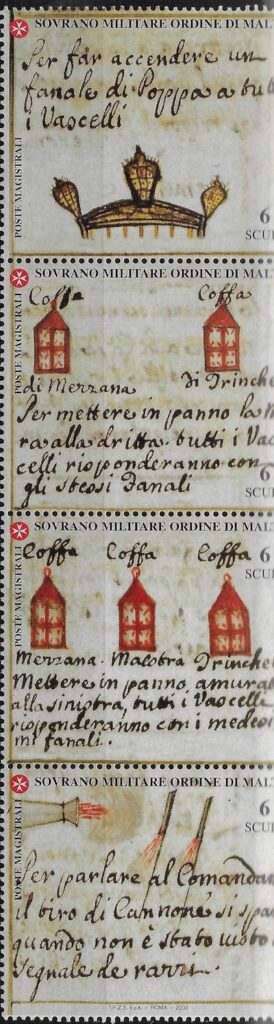 SOVRANO MILITARE ORDINE DI MAL
POSTE MAGISTRALI
Per far accendere un
fanale di Poppa a tut
i Vascelli
6
SCU
SOVRANO MILITARE ORDINE DI MAL
POSTE MAGISTRALI
Coffa Coffa
di Mezzana Di Trinche
Per mettere in panno la M
ra alla dritta tutti i Va
celli risponderanno con
gli stessi fanali
6
SCU
SOVRANO MILITARE ORDINE DI MAL
POSTE MAGISTRALI
Coffa Coffa Coffa
Mezzana Maestra Trinche
Mettere in panno, amurat
alla sinistra, tutti i Vascelle
risponderanno con i medesi
mi fanali.
6
SCU
SOVRANO MILITARE ORDINE DI MAL
POSTE MAGISTRALI
6
SCU
Per parlare al Comandan
il tiro di Cannone si spa
quando non è stato visto
segnale de razzi.
I.P.Z.S. S.p.A. - ROMA - 2003